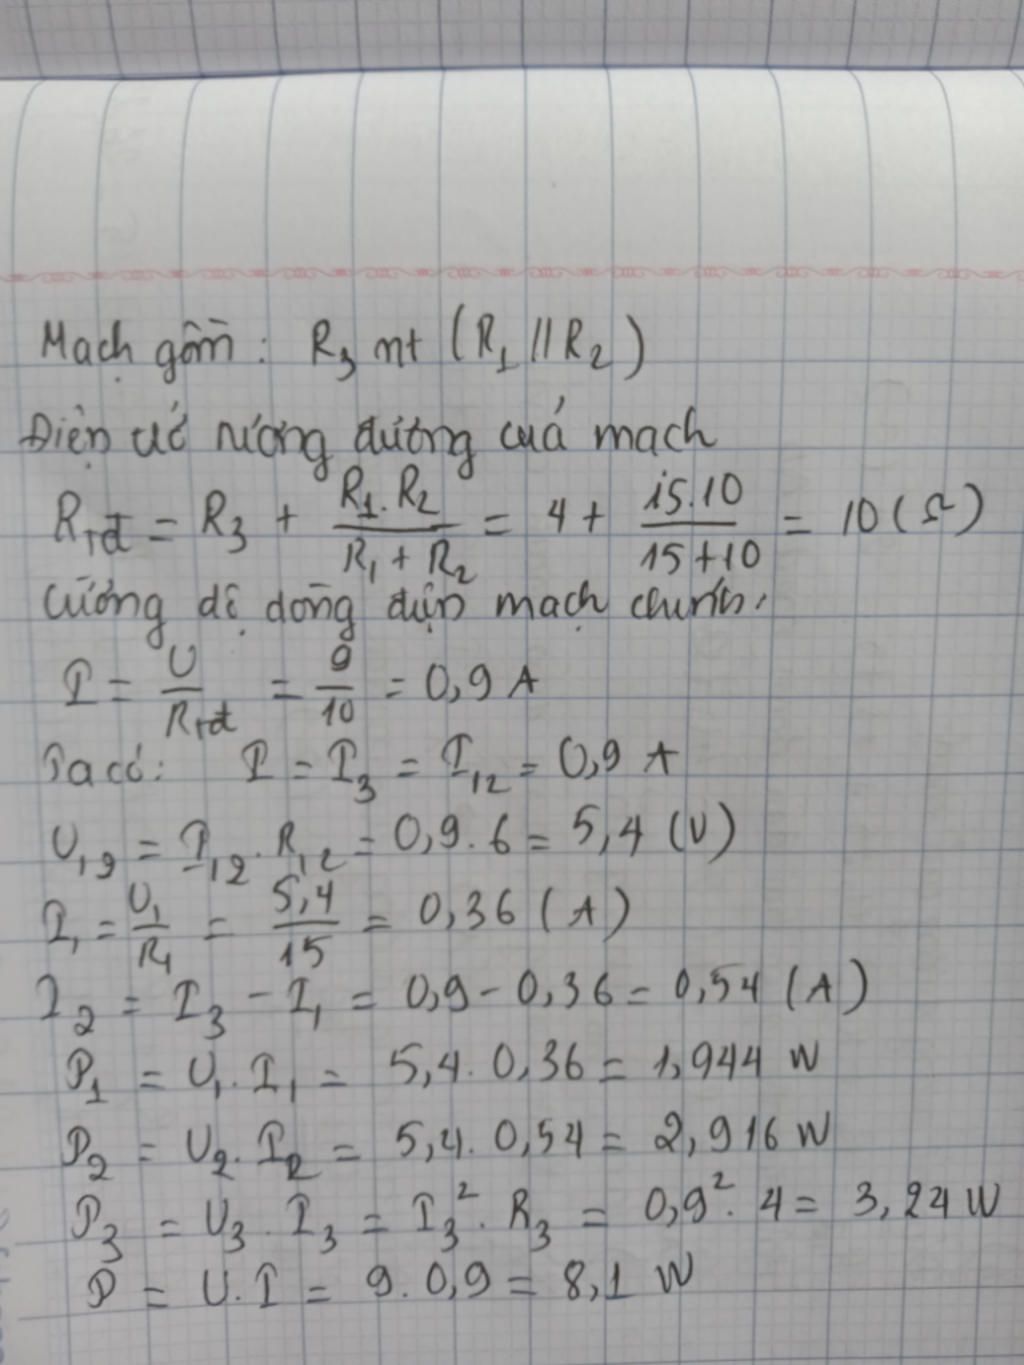 Mạch gồm: R₃ nt (R₁ // R₂)
Điện trở tương đương của mạch
Rtđ = R₃ + R₁.R₂ / (R₁ + R₂) = 4 + 15.10 / (15+10) = 10 (Ω)
Cường độ dòng điện mạch chính:
I = U / Rtđ = 9 / 10 = 0,9 A
Ta có: I = I₃ = I₁₂ = 0,9 A
U₁₂ = I₁₂. R₁₂ = 0,9. 6 = 5,4 (V)
I₁ = U₁ / R₁ = 5,4 / 15 = 0,36 (A)
I₂ = I₃ - I₁ = 0,9 - 0,36 = 0,54 (A)
P₁ = U₁. I₁ = 5,4. 0,36 = 1,944 W
P₂ = U₂. I₂ = 5,4. 0,54 = 2,916 W
P₃ = U₃. I₃ = I₃². R₃ = 0,9². 4 = 3,24 W
P = U.I = 9. 0,9 = 8,1 W